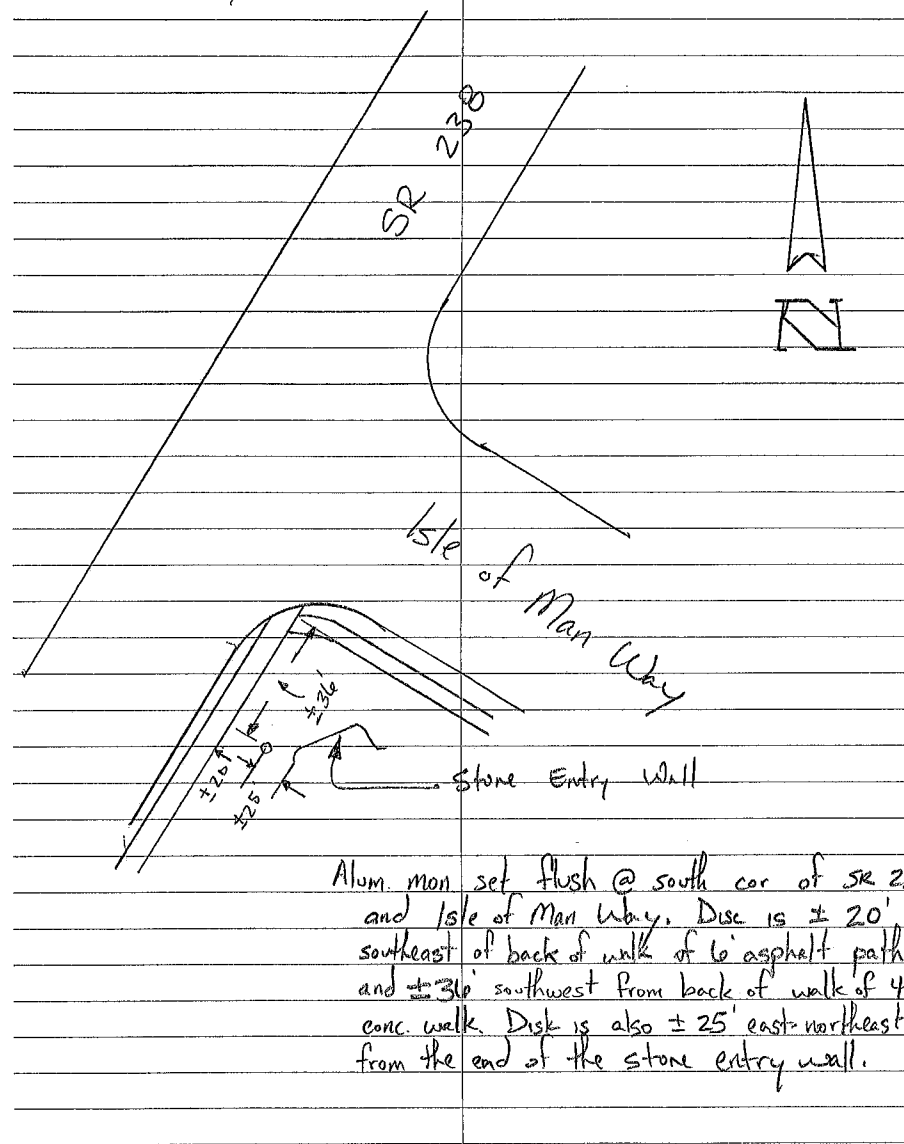 SR 238
N
Isle of Man Way
±36'
±20'
±25'
Stone Entry Wall
Alum. mon set flush @ south cor of SR 2
and Isle of Man Way. Disc is ± 20'
southeast of back of walk of 6' asphalt path
and ±36' southwest from back of walk of 4
conc. walk. Disk is also ± 25' east-northeast
from the end of the stone entry wall.